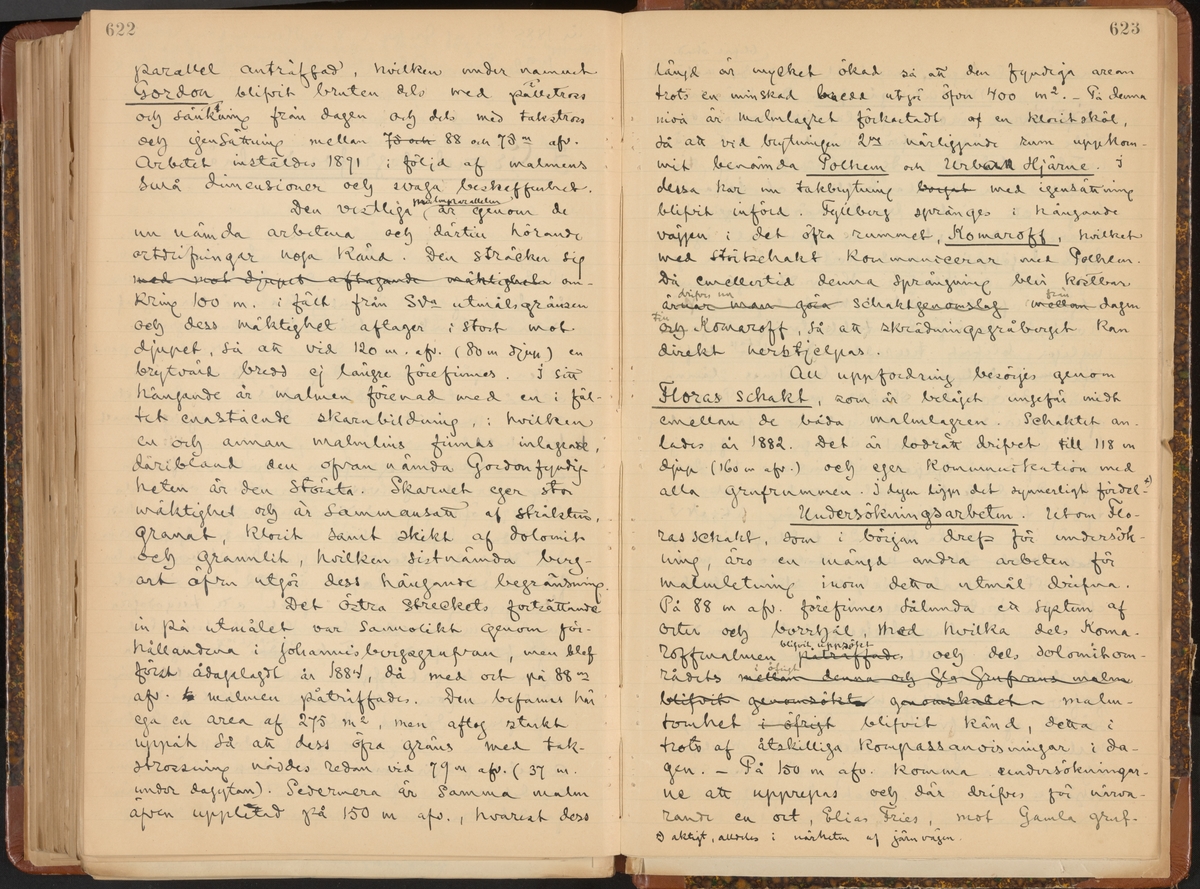 622
parallel anträffad, hvilken under namnet
Gordon blifvit bruten dels med pallstross
och sänkning från dagen och dels med takstross
och igensättning mellan 78 och 88 och 78 m afv.
Arbetet instäldes 1891 i följd af malmens
små dimensioner och svaga beskaffenhet.
Den vestliga malmparallelen är genom de
nu nämda arbetena och därtill hörande
ortdrifningar noga känd. Den sträcker sig
med mot djupet aftagande mäktighet om-
kring 100 m. i fält från Sva utmålsgränsen
och dess mäktighet aftager i stort mot
djupet, så att vid 120 m. afv. (80 m djup) en
brytvärd bredd ej längre förefinnes. I sitt
hängande är malmen förenad med en i fäl-
tet enastående skarnbildning, i hvilken
en och annan malmlins finnas inlagrade,
däribland den ofvan nämda Gordonfyndig-
heten är den största. Skarnet eger stor
mäktighet och är sammansatt af strålsten,
granat, klorit samt skikt af dolomit
och granulit, hvilken sistnämda berg-
art äfven utgör dess hängande begränsning.
Det östra streckets fortsättande
in på utmålet var sannolikt genom för-
hållandena i Johannisborgsgrufvan, men blef
först ådagalagdt år 1884, då med ort på 88 m
afv. malmen påträffades. Den befanns här
ega en area af 275 m², men aftog starkt
uppåt så att dess öfra gräns med tak-
strossning nåddes redan vid 79 m afv. (37 m.
under dagytan). Sedermera är samma malm
äfven uppletad på 150 m afv., hvarest dess
623
längd är mycket ökad så att den fyndiga arean
trots en minskad bredd utgör öfver 400 m². – På denna
nivå är malmlagret förkastadt af en kloritsköl,
så att vid brytningen 2ne närliggande rum uppkom-
mit benämda Polhem och Urban Hjärne. I
dessa har nu takbrytning börjat med igensättning
blifvit införd. Fyllberg spränges i hängande
väggen i det öfra rummet, Komaroff, hvilket
med störtschakt kommunicerar med Polhem.
Då emellertid denna sprängning blir kostbar
drifves nu från
ärnar man göra schaktgenomslag mellan dagen
till
och Komaroff, så att skrädningsgråberget kan
direkt nerstjelpas.
All uppfordring besörjes genom
Floras schakt, som är beläget ungefär midt
emellan de båda malmlagren. Schaktet an-
lades år 1882. Det är lodrätt drifvet till 118 m
djup (160 m afv.) och eger kommunikation med
alla grufrummen. I dagen ligger det synnerligt fördel- *)
Undersökningsarbeten. Utom Flo-
ras schakt, som i början drefs för undersök-
ning, äro en mängd andra arbeten för
malmletning inom detta utmål drifna.
På 88 m afv. förefinnes sålunda ett system af
orter och borrhål, med hvilka dels Koma-
blifvit uppsökt
roffmalmen påträffades och dels dolomitom-
i öfrigt
rådets mellan denna och Sta Grufvans malm
blifvit genomsökts genomskalet malm-
tomhet i öfrigt blifvit känd, detta i
trots af åtskilliga kompassanvisningar i da-
gen. – På 150 m afv. komma undersökningar-
ne att upprepas och där drifves för närva-
rande en ort, Elias Fries, mot Gamla gruf-
*) aktigt, alldeles i närheten af järnvägen.